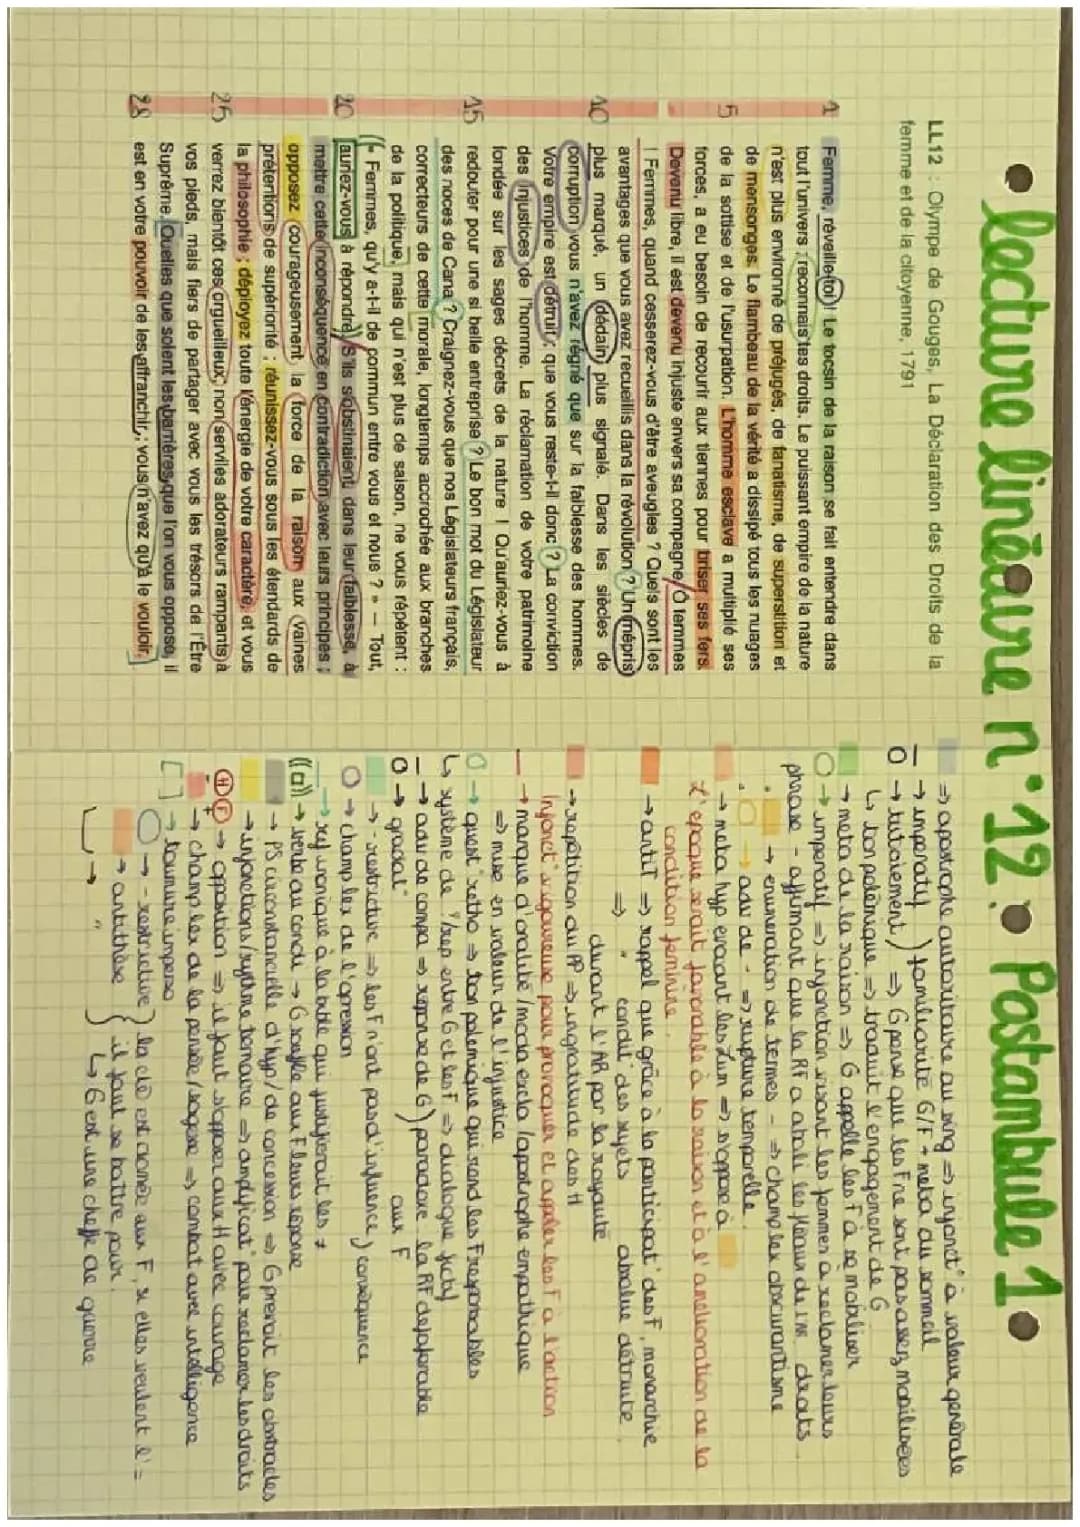 • lecture linéaire n°12 : Postambule 1 •
LL12 : Olympe de Gouges, La Déclaration des Droits de la
femme et de la citoyenne, 1791
1 Femme, réveille-toi ! Le tocsin de la raison se fait entendre dans
tout l'univers ; reconnais tes droits. Le puissant empire de la nature
n'est plus environné de préjugés, de fanatisme, de superstition et
de mensonges. Le flambeau de la vérité a dissipé tous les nuages
5 de la sottise et de l'usurpation. L'homme esclave a multiplié ses
forces, a eu besoin de recourir aux tiennes pour briser ses fers.
Devenu libre, il est devenu injuste envers sa compagne. Ô femmes
! Femmes, quand cesserez-vous d'être aveugles ? Quels sont les
avantages que vous avez recueillis dans la révolution ? Un mépris
10 plus marqué, un dédain plus signalé. Dans les siècles de
corruption vous n'avez régné que sur la faiblesse des hommes.
Votre empire est détruit ; que vous reste-t-il donc ? La conviction
des injustices de l'homme. La réclamation de votre patrimoine
fondée sur les sages décrets de la nature ! Qu'auriez-vous à
15 redouter pour une si belle entreprise ? Le bon mot du Législateur
des noces de Cana ? Craignez-vous que nos Législateurs français,
correcteurs de cette morale, longtemps accrochée aux branches
de la politique, mais qui n'est plus de saison, ne vous répètent :
« Femmes, qu'y a-t-il de commun entre vous et nous ? » — Tout,
20 auriez-vous à répondre. S'ils s'obstinaient, dans leur faiblesse, à
mettre cette inconséquence en contradiction avec leurs principes ;
opposez courageusement la force de la raison aux vaines
prétentions de supériorité ; réunissez-vous sous les étendards de
la philosophie ; déployez toute l'énergie de votre caractère, et vous
25 verrez bientôt ces orgueilleux, non serviles adorateurs rampants à
vos pieds, mais fiers de partager avec vous les trésors de l'Être
Suprême. Quelles que soient les barrières que l'on vous oppose, il
28 est en votre pouvoir de les affranchir ; vous n'avez qu'à le vouloir.
⇒ apostrophe autoritaire au sing ⇒ injonct° à valeur générale
→ imperatif ) familiarité G/F + meta du sommeil
O → tutoiement ) ⇒ G pense que les F ne sont pas assez mobilisées
↳ ton polémique ⇒ traduit l'engagement de G
→ meta de la raison ⇒ G appelle les F à se mobiliser
O → imperatif ⇒ injonction visant les femmes a reclamer leurs droits.
phrase - affirmant que la RF a aboli les fléaux du
→ enumération de termes - ⇒ champ lex obscurantisme
→ adv de - ⇒ rupture temporelle.
→ meta hyp evocant les Lum ⇒ s'oppose à
L'epoque serait favorable à la raison et à l'amélioration de la
condition feminine.
→ antiT ⇒ rappel que grâce à la participat° des F, monarchie
⇒ " condit° des sujets absolue détruite.
durant l'AR par la royauté
→ repétition du PP ⇒ ingratitude des H
Injonct° vigoureuse pour provoquer et appeler les F a l'action
→ marque d'oralité / moda exclo / apostrophe empathique
⇒ mise en valeur de l'injustice
O → quest° retho ⇒ ton polemique qui rend les F responsables
↳ système de ?/rep entre G et les F ⇒ dialogue fictif
→ adv de compa ⇒ reponse de G ) paradoxe la RF defavorable
O → gradat° aux F
→ - restrictive ⇒ les F n'ont pas d'influence ) conséquence
O → champ lex de l'opression
→ ref ironique à la bible qui justifierait les ≠
((a)) → verbe au condi → G souffle aux F leurs réponse
→ PS circonstancielle d'hyp / de concession ⇒ G prevoit les obstacles
→ injonctions / rythme ternaire ⇒ amplificat° pour reclamer les droits
(H)(F) → opposition ⇒ il faut s'opposer aux H avec courage
→ champ lex de la pensée / sagesse ⇒ combat avec intelligence
[ ] → tournure imperso
O → - restrictive ) la clé est donnée aux F, si elles veulent l'=
→ antithèse } il faut se battre pour.
→ " ↳ G est une cheffe de guerre